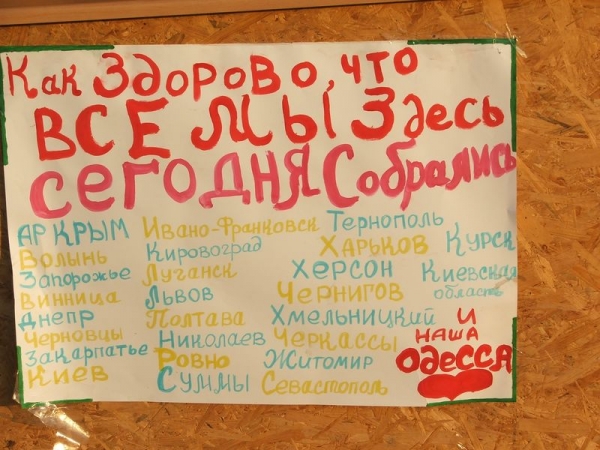 Как Здорово, что
ВСЕ МЫ Здесь
СЕГОДНЯ Собрались
АР КРЫМ
Волынь
Запорожье
Винница
Днепр
Черновцы
Закарпатье
Киев
Ивано-Франковск
Кировоград
Луганск
Львов
Полтава
Николаев
Ровно
Суммы
Тернополь
Харьков
Херсон
Чернигов
Хмельницкий
Черкассы
Житомир
Севастополь
Курск
Киевская
область
И
НАША
Одесса